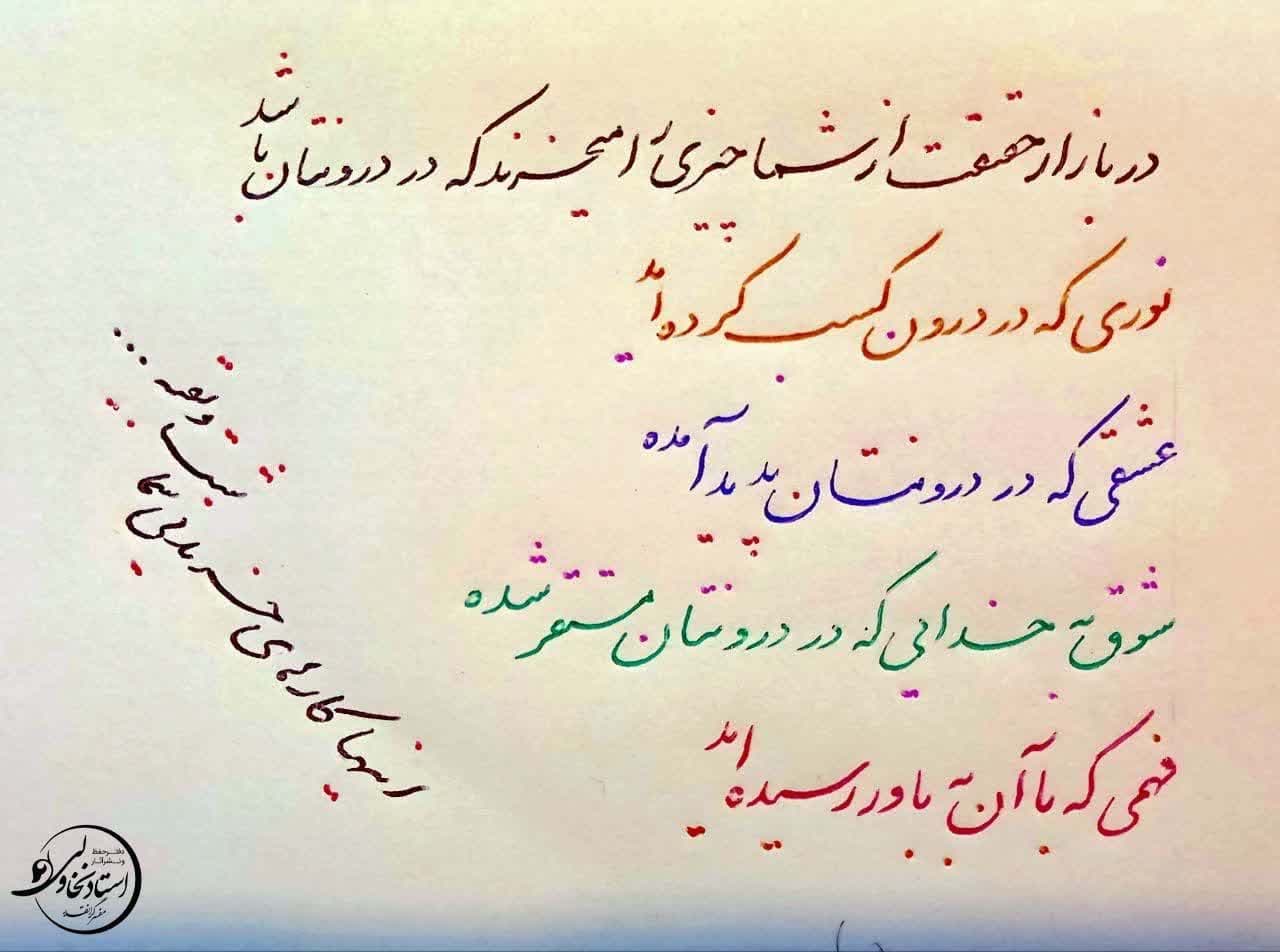 در بازار حقیقت از شما چیزی را می‌خرند که در درونتان باشد
نوری که در درون کسب کرده‌اید
عشقی که در درونتان پدید آمده
شوق به خدایی که در درونتان مستقر شده
فهمی که با آن به باور رسیده‌اید
از اینها کارهای خریدنی شماست و بقیه...
دفتر حفظ
و نشر آثار
استاد نخاولی
مفسر گرانقدر